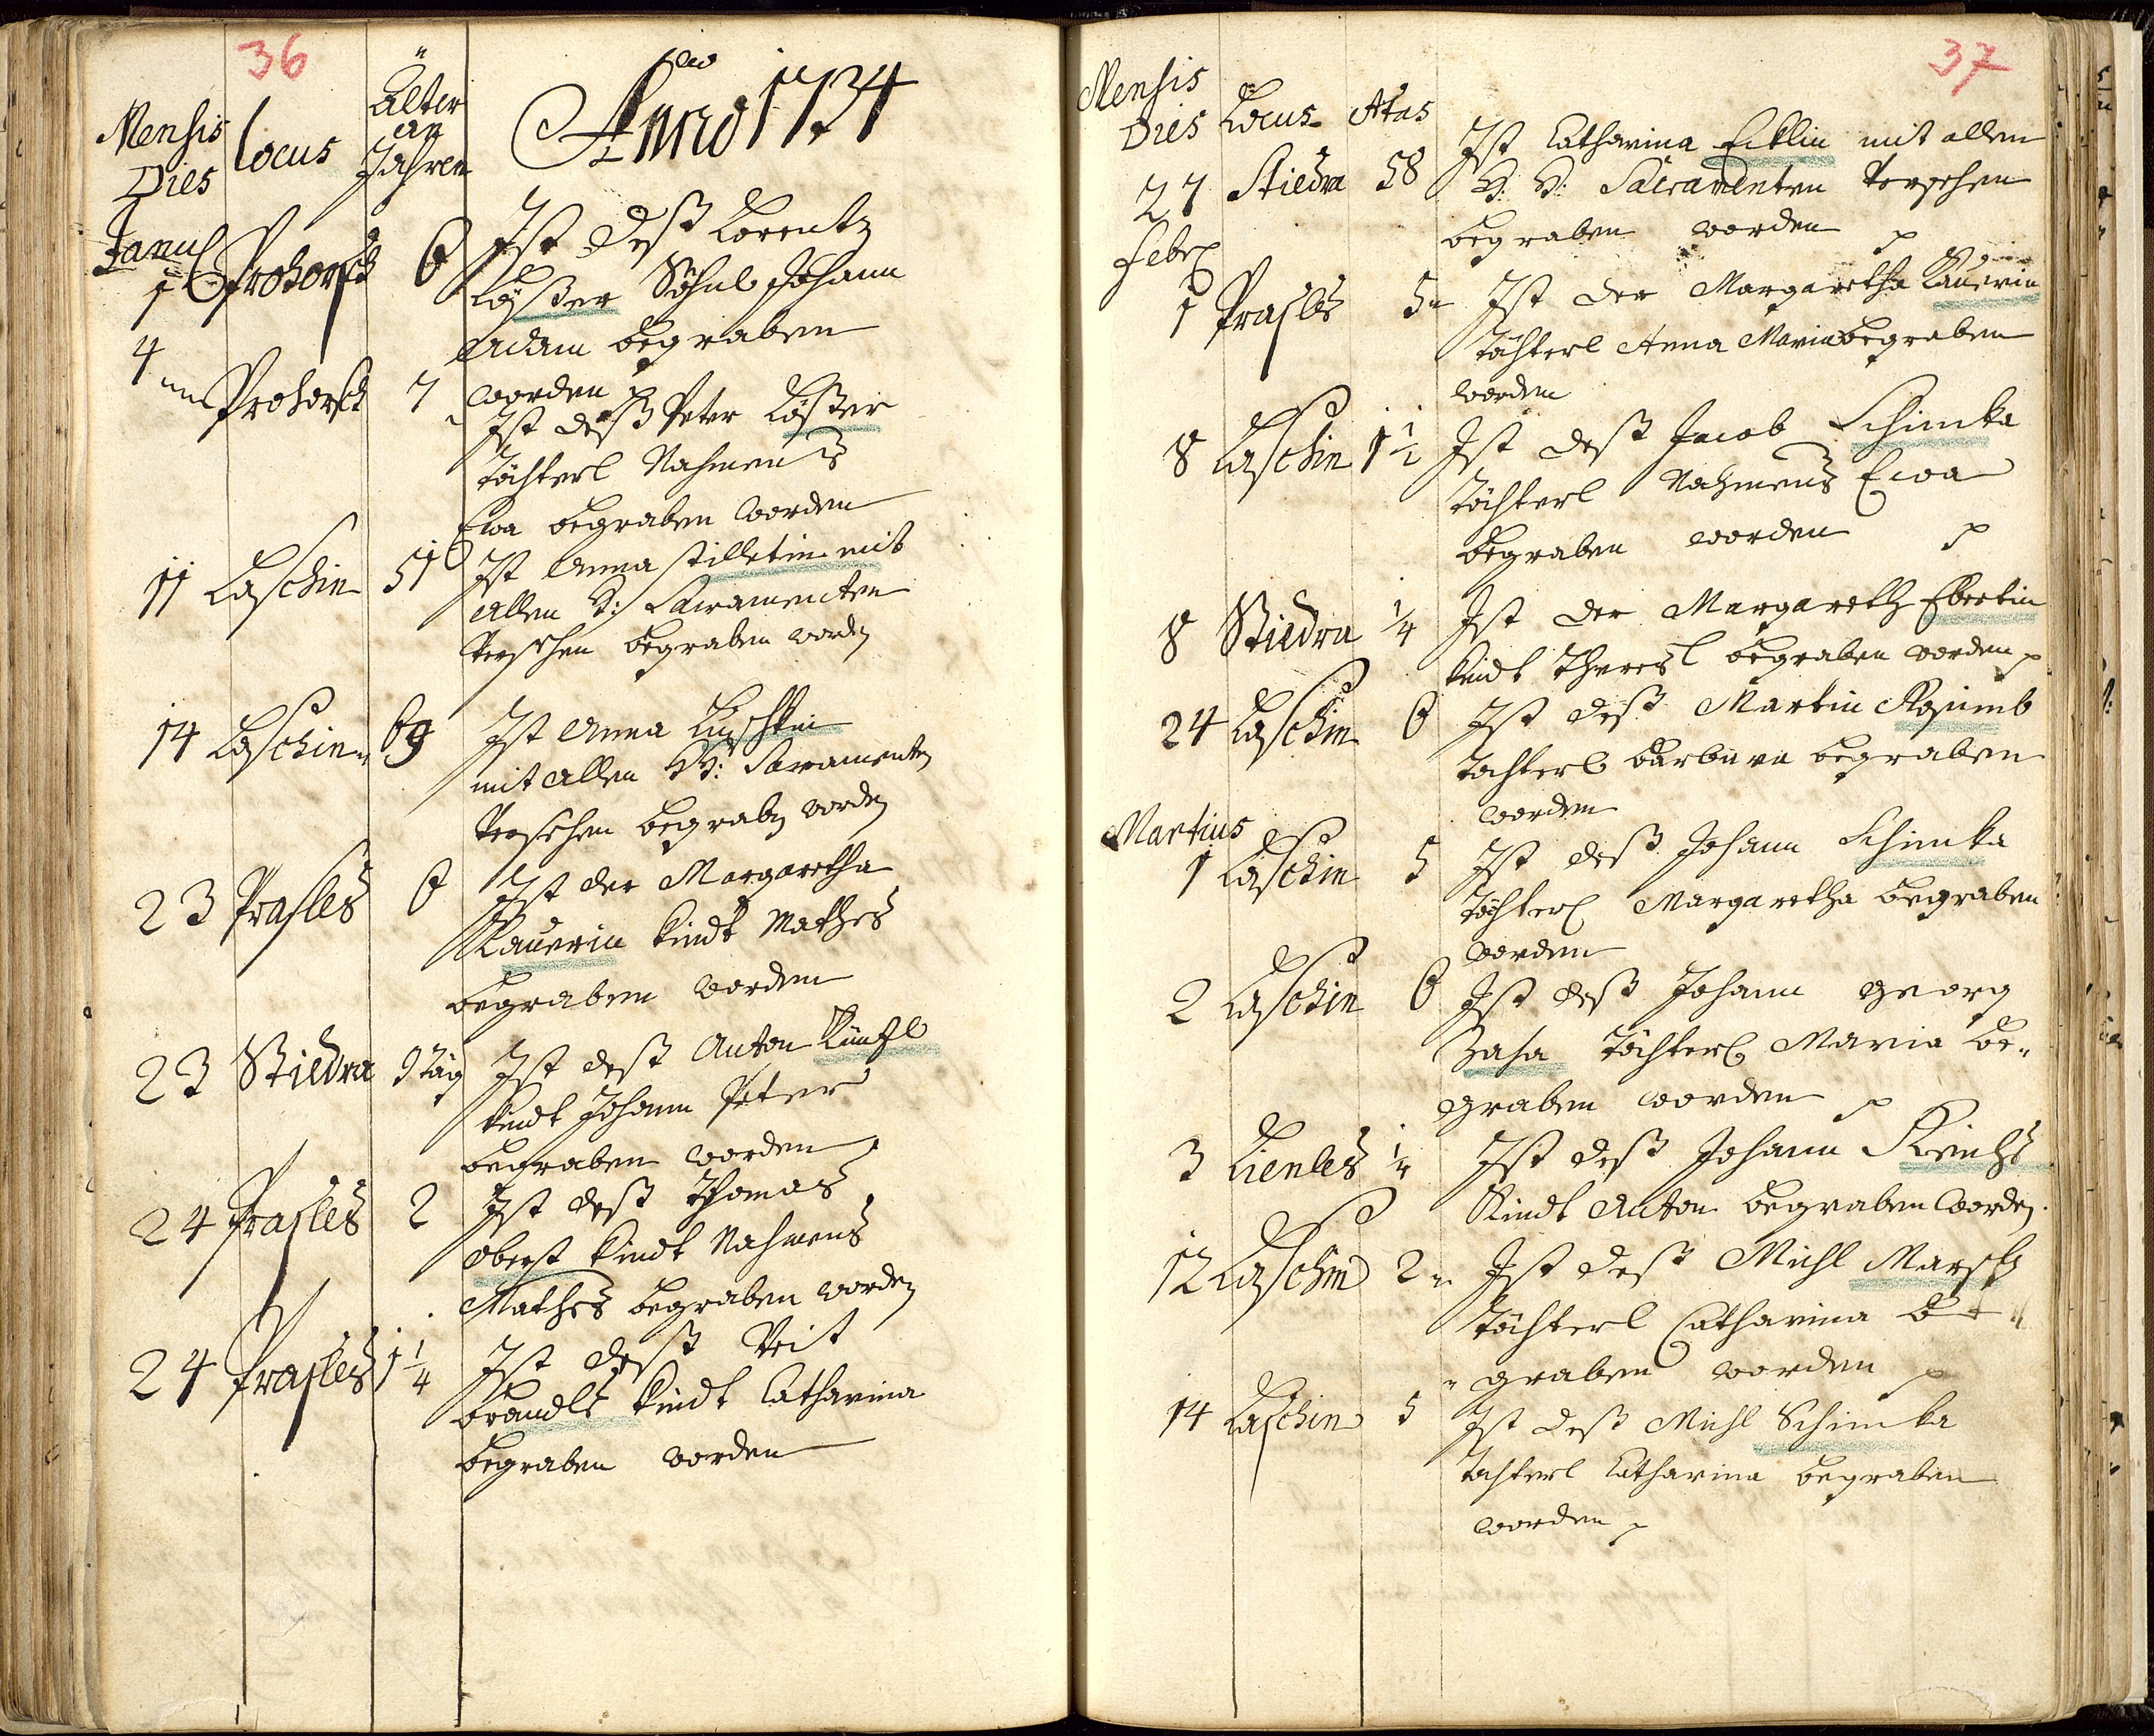 36
Anno 1734
Mensis
Dies
locus
Alter
an
Jahren
Janu
1 Prohorsch 6 Ist deß Lorentz
Lößer Söhnl Johann
Adam begraben
worden
4
Prohorsch 7 Ist deß Peter Lößer
töchterl Nahmens
Eva begraben worden
11 Laschin 51 Ist Anna Stilletin mit
allen H: Sacramenten
versehen begraben worden
14 Laschin 69 Ist Anna
mit allen H: Sacramenten
versehen begraben worden
23 Prasles 6 Ist der Margaretha
Lauerin kindt Mathes
begraben worden
23 Stiedra 9 täg Ist deß Anton Künzl
kindt Johann Peter
begraben worden
24 Prasles 2 Ist deß Thomas
Oberst kindt Nahmens
Mathes begraben worden
24 Prasles 1 1/4 Ist deß Veit
brandls kindt Catharina
begraben worden
37
Mensis
Dies Locus Ætas
27 Stiedra 58 Ist Catharina Ecklin mit allen
H. H: Sacramenten versehen
begraben worden
Febr
1 Prasles 5 Ist der Margaretha Lauerin
töchterl Anna Maria begraben
worden
8 Laschin 1 1/2 Ist deß Jacob Schimka
töchterl Nahmens Ewa
begraben worden
8 Stiedra 1/4 Ist der Margareth Ebertin
kindt Theresl begraben worden
24 Laschin 6 Ist deß Martin
tochterl barbara begraben
worden
Martius
1 Laschin 5 Ist deß Johann Schimka
töchterl Margaretha begraben
worden
2 Laschin 6 Ist deß Johann Georg
Zaha töchterl Maria be-
graben worden
3 Lienles 1/4 Ist deß Johann
Kindt Anton begraben worden.
12 Laschin 2 Ist deß Michl
töchterl Catharina be-
graben worden
14 Laschin 5 Ist deß Michl Schimka
tochterl Catharina begraben
worden